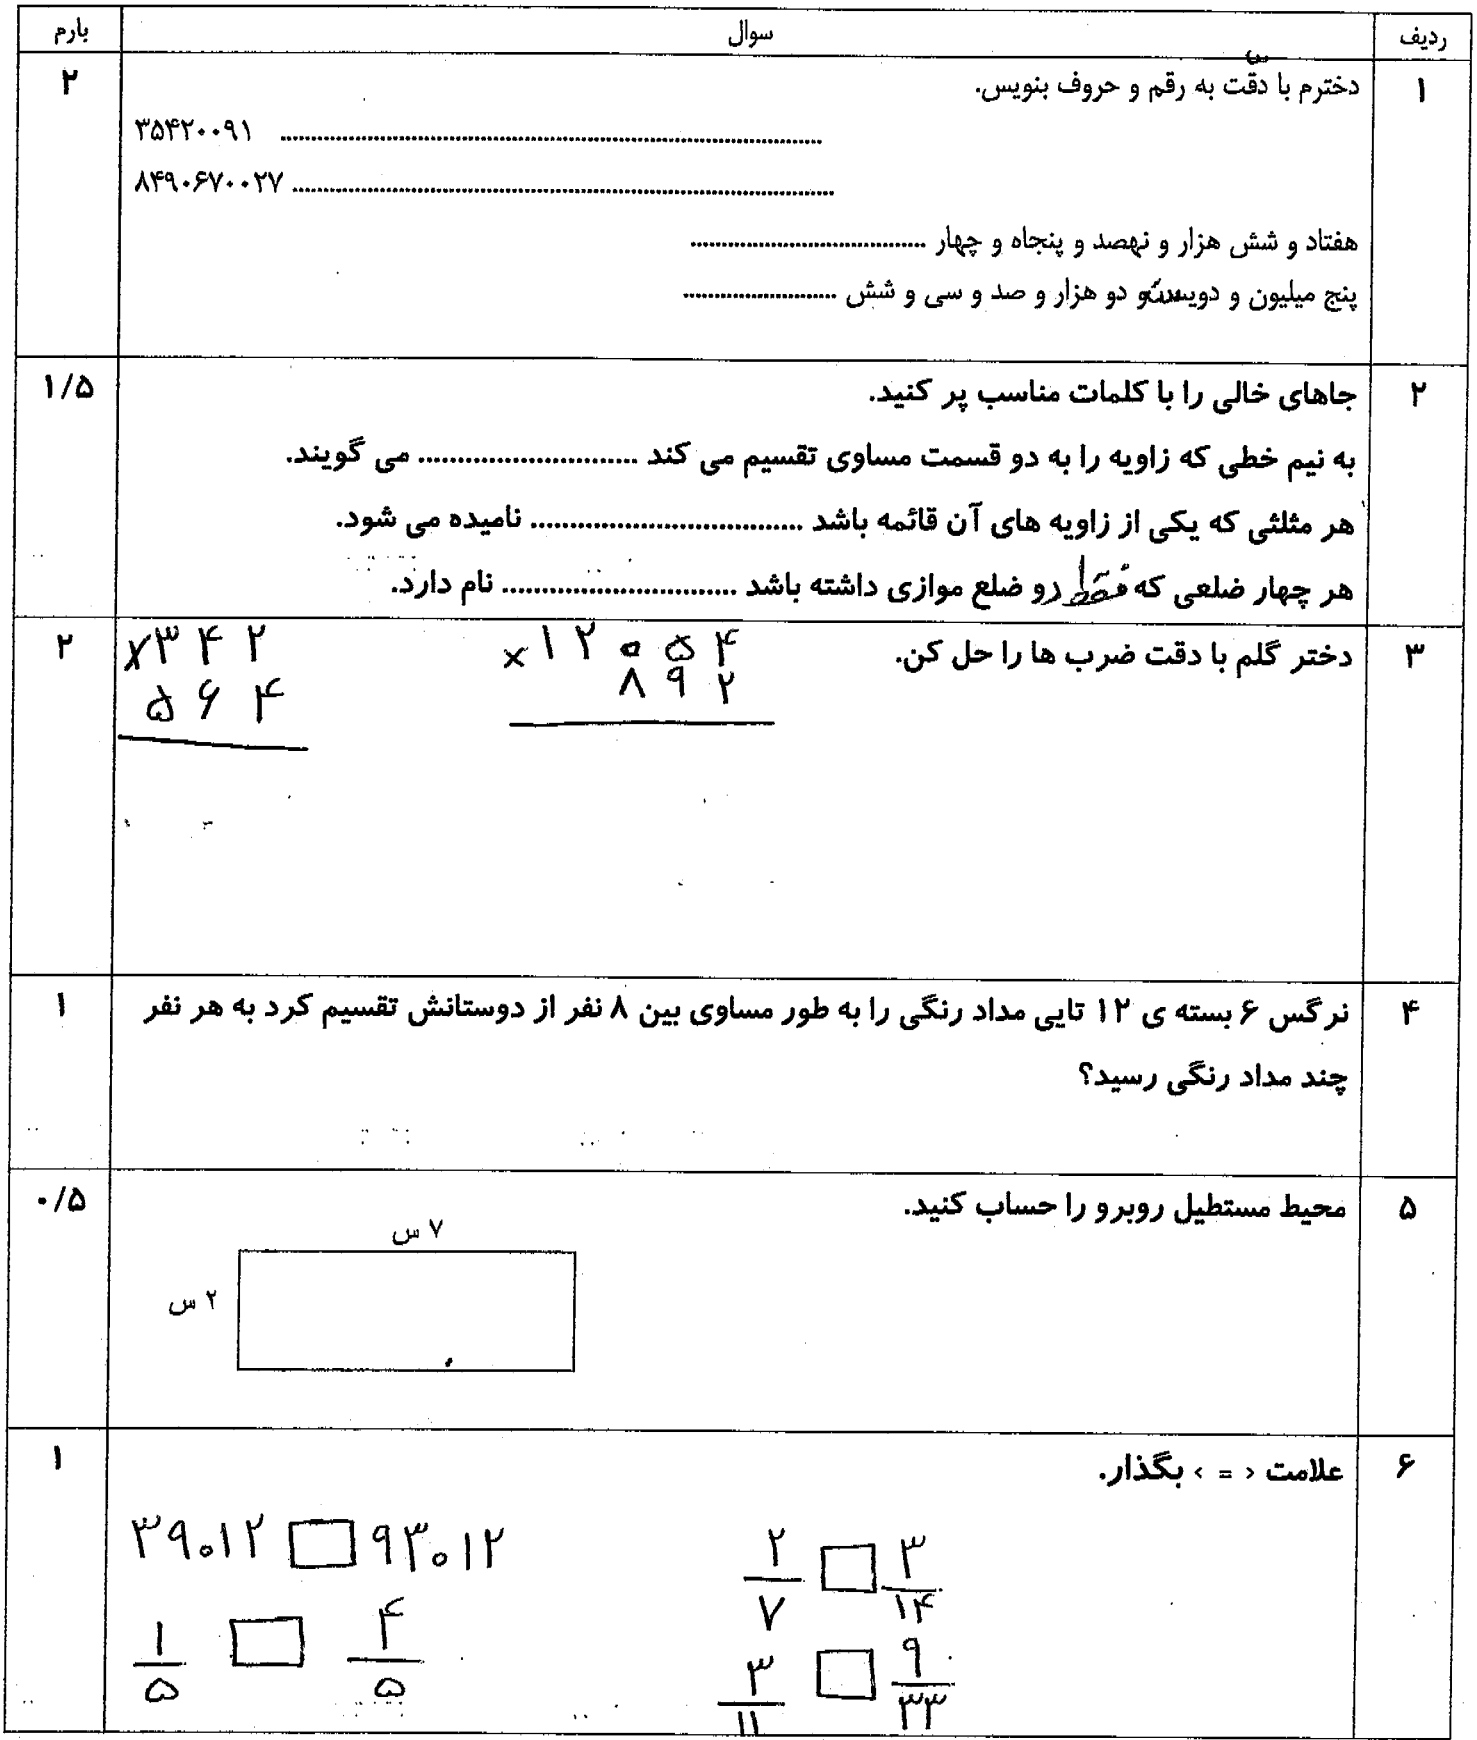 ردیف سوال بارم
۱ دخترم با دقت به رقم و حروف بنویس. ۲
۳۵۴۲۰۰۹۱ ................................
۸۴۹۰۶۷۰۰۲۷ ................................
هفتاد و شش هزار و نهصد و پنجاه و چهار ................................
پنج میلیون و دویست و دو هزار و صد و سی و شش ........................
۲ جاهای خالی را با کلمات مناسب پر کنید. ۱/۵
به نیم خطی که زاویه را به دو قسمت مساوی تقسیم می کند ............................ می گویند.
هر مثلثی که یکی از زاویه های آن قائمه باشد ................................ نامیده می شود.
هر چهار ضلعی که فقط دو ضلع موازی داشته باشد ............................ نام دارد.
۳ دختر گلم با دقت ضرب ها را حل کن. ۲
× ۱۲۰۵۴
۸۹۲
× ۳۴۲
۵۶۴
۴ نرگس ۶ بسته ی ۱۲ تایی مداد رنگی را به طور مساوی بین ۸ نفر از دوستانش تقسیم کرد به هر نفر ۱
چند مداد رنگی رسید؟
۵ محیط مستطیل روبرو را حساب کنید. ۰/۵
۷ س
۲ س
۶ علامت < = > بگذار. ۱
۳۹۰۱۲ □ ۹۳۰۱۲
۲/۷ □ ۳/۱۴
۱/۵ □ ۴/۵
۳/۱۱ □ ۹/۳۳